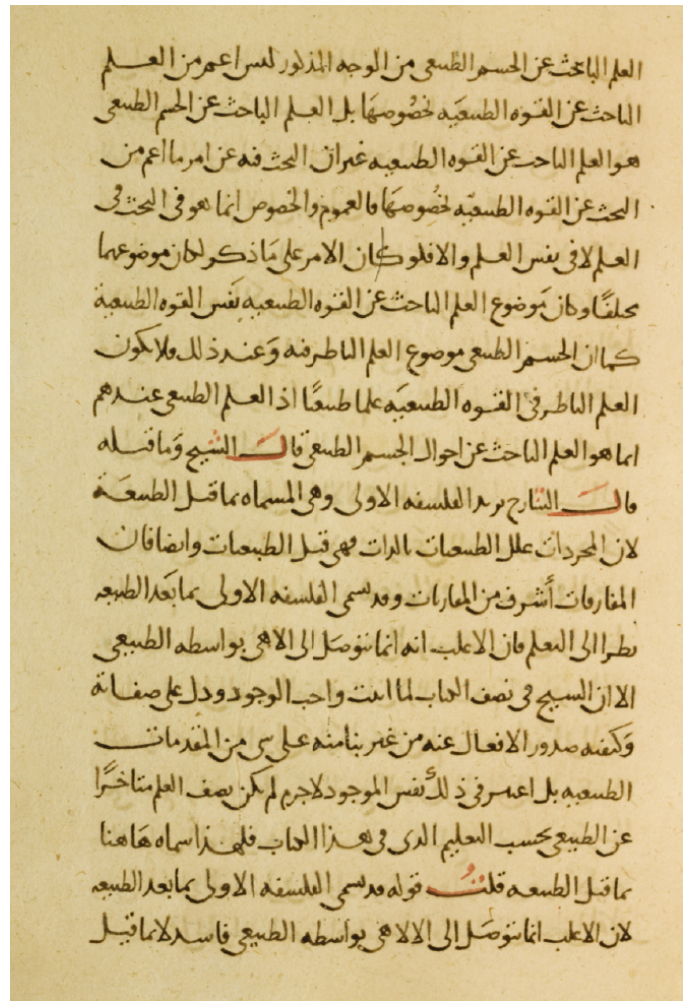 العلم الباحث عن الجسم الطبيعى من الوجه المذكور ليس اعم من العلم
الباحث عن القوه الطبيعيه بخصوصها بل العلم الباحث عن الجسم الطبيعى
هو العلم الباحث عن القوه الطبيعيه غير ان البحث فيه عن امر ما اعم من
البحث عن القوه الطبيعيه بخصوصها فالعموم والخصوص انما هو فى البحث فى
العلم لا فى نفس العلم والا فلو كان الامر على ما ذكر لكان موضوعهما
مختلفًا وكان موضوع العلم الباحث عن القوه الطبيعيه نفس القوه الطبيعية
كما ان الجسم الطبيعى موضوع العلم الناظر فيه وعند ذلك فلا يكون
العلم الناظر فى القوه الطبيعيه علما طبيعيًا اذ العلم الطبيعى عندهم
انما هو العلم الباحث عن احوال الجسم الطبيعى قال الشيخ وما قبله
قال الشارح يريد الفلسفه الاولى وهى المسماه بما قبل الطبيعة
لان المجردات علل الطبيعيات بالذات فهى قبل الطبيعيات وايضا فان
المفارقات أشرف من المقارنات وقد يسمى الفلسفه الاولى بما بعد الطبيعه
نظرا الى التعلم فان الاغلب انه انما يتوصل الى الالاهى بواسطه الطبيعى
الا ان الشيخ فى نصف الكتاب لما اثبت واجب الوجود ودل على صفاته
وكيفيه صدور الافعال عنه من غير بنا منه على شى من المقدمات
الطبيعيه بل اعتبر فى ذلك نفس الموجود لاجرم لم يكن نصف العلم متاخرًا
عن الطبيعى بحسب التعليم الذى فى هذا الكتاب فلهذا سماه هاهنا
بما قبل الطبيعه قلتُ قوله قد يسمى الفلسفه الاولى بما بعد الطبيعه
لان الاغلب انما يتوصل الى الالاهى بواسطه الطبيعى فاسد لان ما قبل